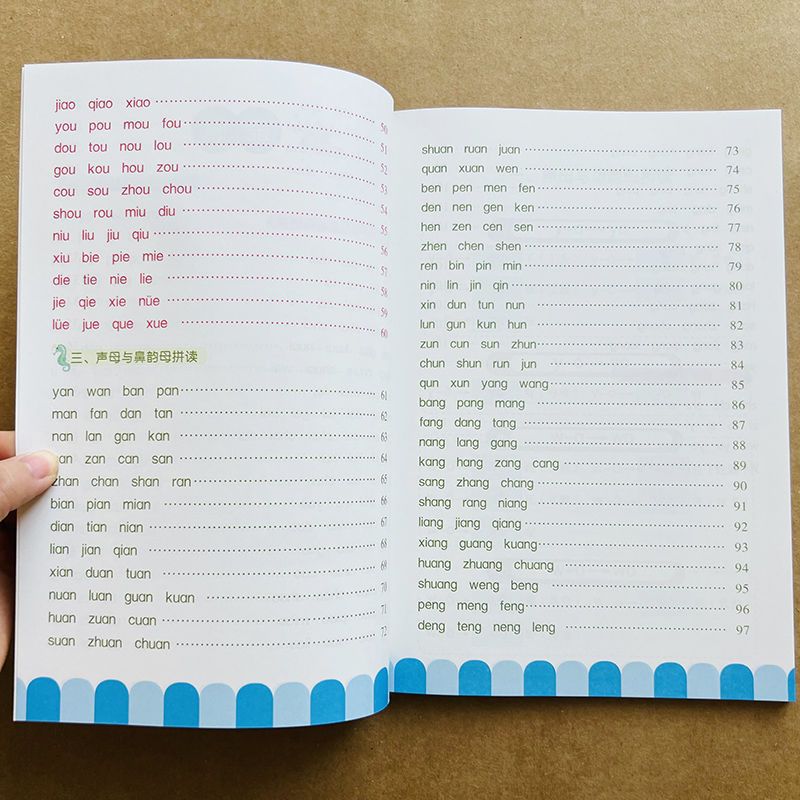 jiao qiao xiao 50
you pou mou fou 51
dou tou nou lou 52
gou kou hou zou 53
cou sou zhou chou 54
shou rou miu diu 55
niu liu jiu qiu 56
xiu bie pie mie 57
die tie nie lie 58
jie qie xie nüe 59
lüe jue que xue 60
三、声母与鼻韵母拼读
yan wan ban pan 61
man fan dan tan 62
nan lan gan kan 63
zan can san 64
zhan chan shan ran 65
bian pian mian 66
dian tian nian 67
lian jian qian 68
xian duan tuan 69
nuan luan guan kuan 70
huan zuan cuan 71
suan zhuan chuan 72
shuan ruan juan 73
quan xuan wen 74
ben pen men fen 75
den nen gen ken 76
hen zen cen sen 77
zhen chen shen 78
ren bin pin min 79
nin lin jin qin 80
xin dun tun nun 81
lun gun kun hun 82
zun cun sun zhun 83
chun shun run jun 84
qun xun yang wang 85
bang pang mang 86
fang dang tang 87
nang lang gang 88
kang hang zang cang 89
sang zhang chang 90
shang rang niang 91
liang jiang qiang 92
xiang guang kuang 93
huang zhuang chuang 94
shuang weng beng 95
peng meng feng 96
deng teng neng leng 97